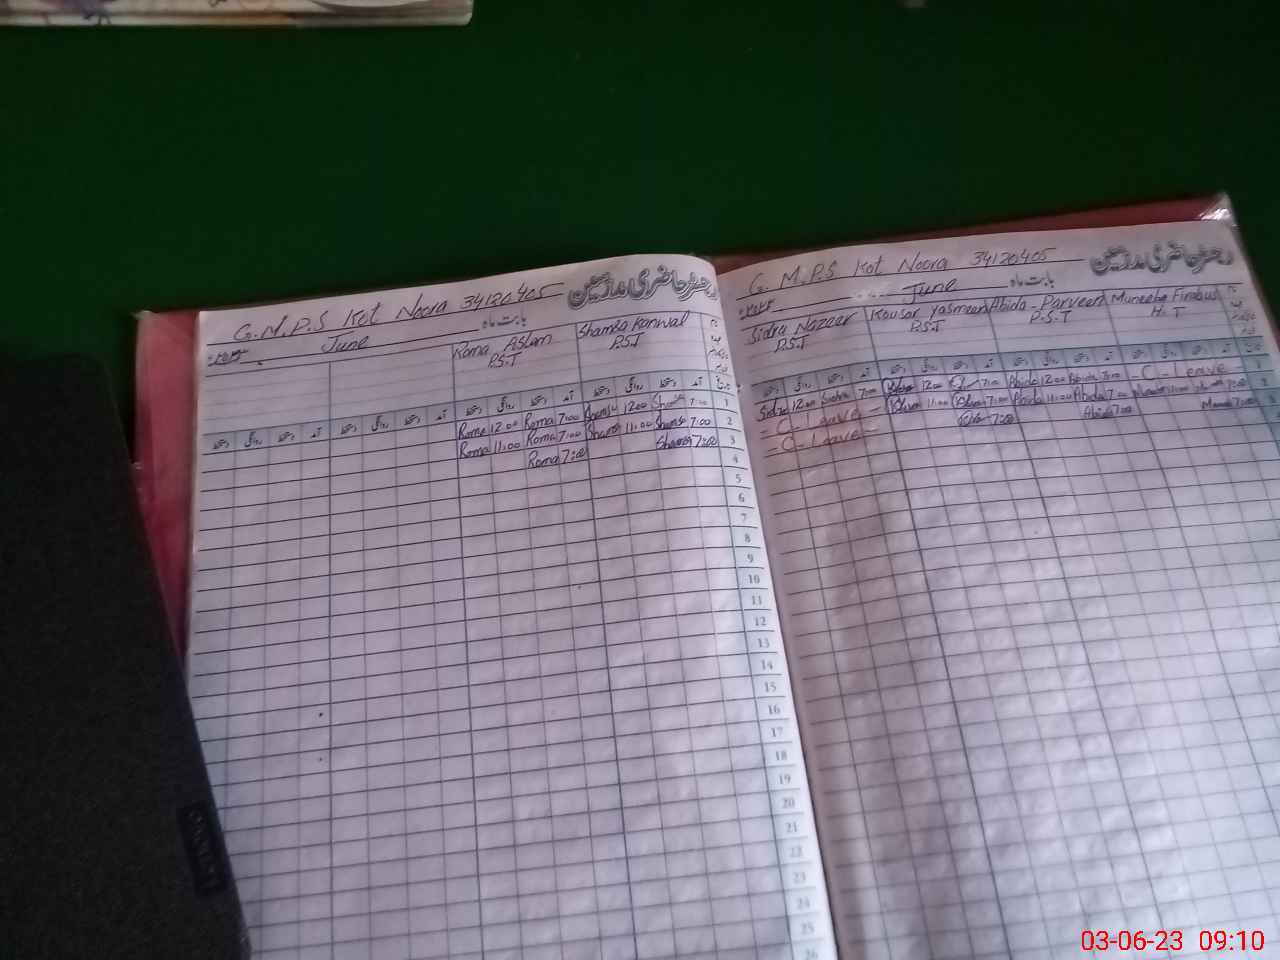 G.M.P.S Kot Noora 34120405 رجسٹر حاضری مدرسین
June بابت ماہ
Roma Aslam
P.S.T
Shamsa Kanwal
P.S.T
Roma 12:00 Roma 7:00 12:00 7:00 1
Roma 11:00 Roma 7:00 Shamsa 11:00 Shamsa 7:00 2
Roma 7:00 Shamsa 7:00 3
4
5
6
7
8
9
10
11
12
13
14
15
16
17
18
19
20
21
22
23
24
25
26
G. M.P.S Kot Noora 34120405 رجسٹر حاضری مدرسین
June بابت ماہ
Sidra Nazeer
P.S.T
Kousar Yasmeen
P.S.T
Abida Parveen
P.S.T
Muneeba Firdous
H.T
Sidra 12:00 Sidra 7:00 12:00 7:00 Abida 12:00 Abida 7:00 - C - Leave 1
- C - Leave - 11:00 7:00 Abida 11:00 Abida 7:00 11:00 7:00 2
- C - Leave - 7:00 Abida 7:00 7:00 3
03-06-23 09:10